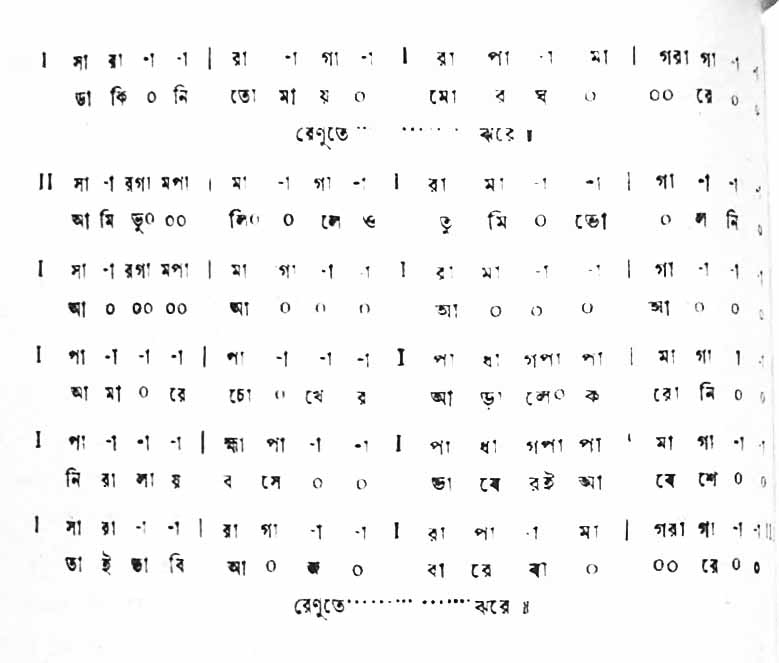 I সা রা -া -া | রা -া গা -া I রা পা -া মা | গরা গা -া -া
ডা কি ০ নি তো মা য় ০ মো র ঘ ০ ০০ রে ০ ০
রেণুতে ··· ······· ঝরে ॥
II সা -া রগা মপা | মা -া গা -া I রা মা -া -া | গা -া -া -া
আ মি ভু০ ০০ লি০ ০ লে ও তু মি ০ তো ০ ল নি ০
I সা -া রগা মপা | মা গা -া -া I রা মা -া -া | গা -া -া -া
আ ০ ০০ ০০ আ ০ ০ ০ আ ০ ০ ০ আ ০ ০ ০
I পা -া -া -া | পা -া -া -া I পা ধা গপা পা | মা গা া -া
আ মা ০ রে চো ০ খে র আ ড়া লে০ ক রো নি ০ ০
I পা -া -া -া | হ্মা পা -া -া I পা ধা গপা পা ' মা গা -া -া
নি রা লা য় ব সে ০ ০ ভা বে রই আ বে শে ০ ০
I সা রা -া -া | রা গা -া -া I রা পা -া মা | গরা গা -া -া II
তা ই ভা বি আ ০ জ ০ বা রে বা ০ ০০ রে ০ ০
রেণুতে·········· ·······ঝরে ॥